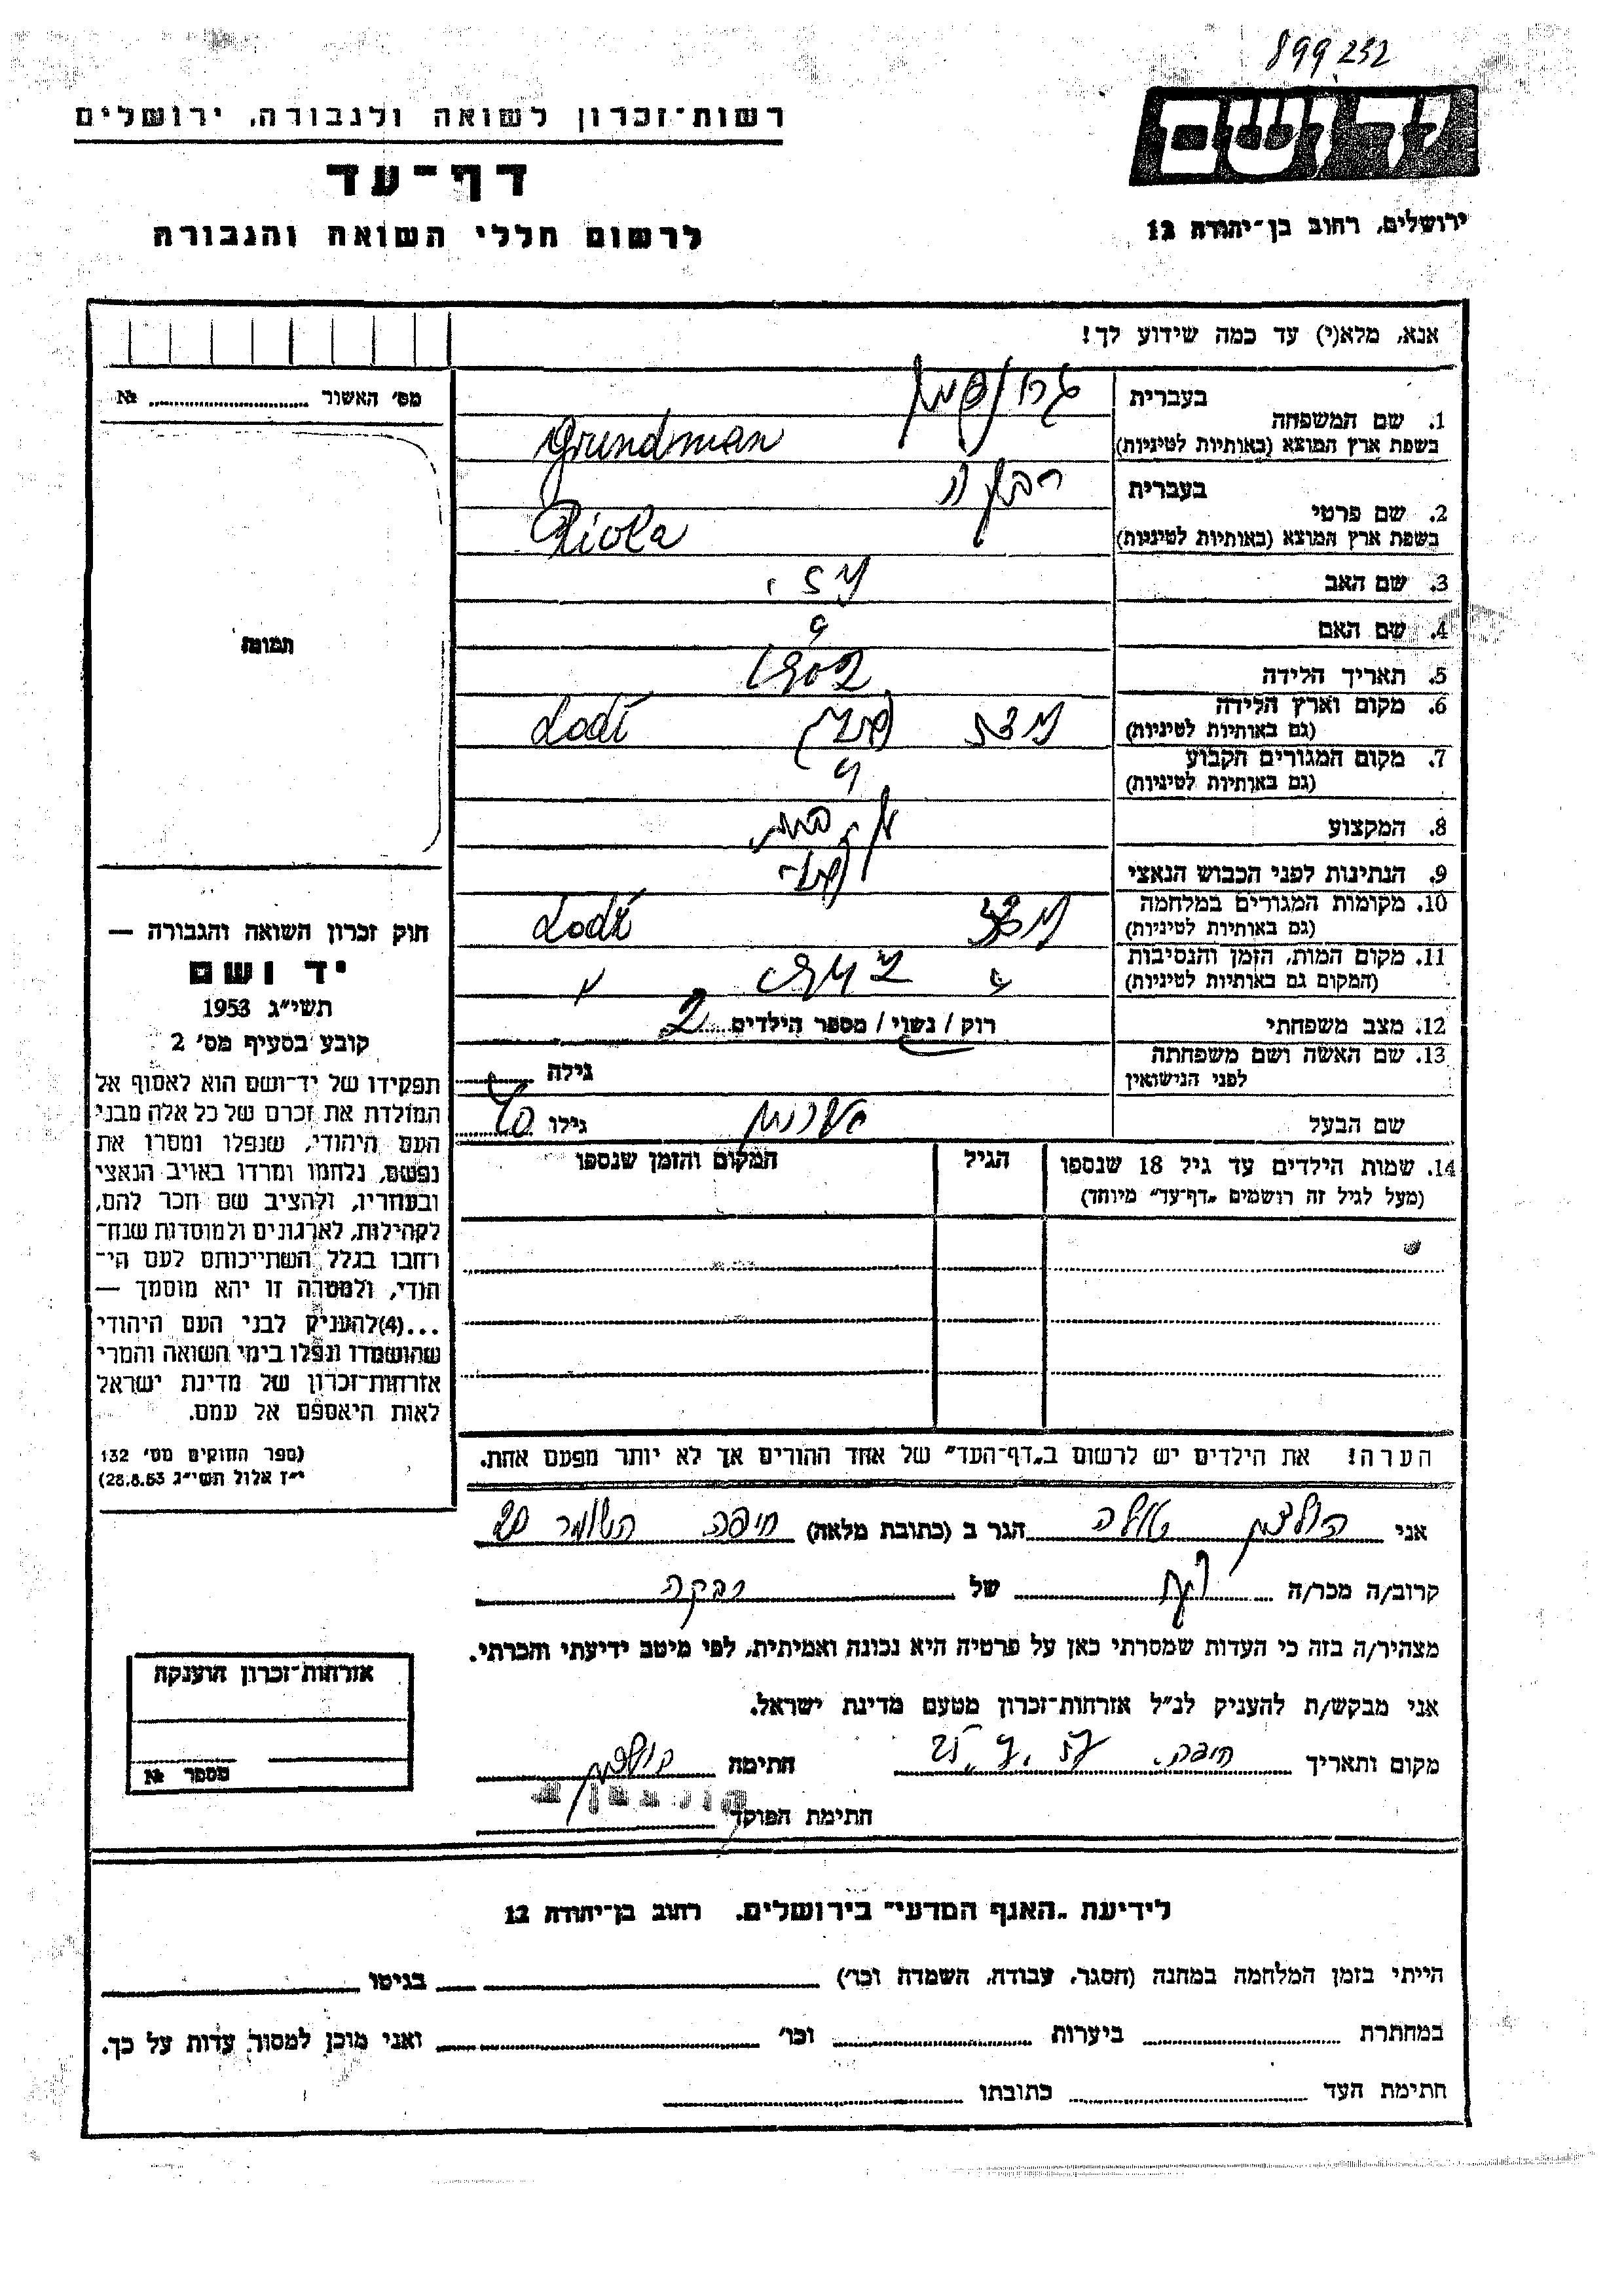 899232
יד ושם
ירושלים, רחוב בן־יהודה 12
רשות־זכרון לשואה ולגבורה, ירושלים
דף־עד
לרשום חללי השואה והגבורה
אנא, מלא(י) עד כמה שידוע לך!
מס׳ האשור № ........
תמונה
1. שם המשפחה
בעברית
גרונדמן
בשפת ארץ המוצא (באותיות לטיניות)
Grundman
2. שם פרטי
בעברית
רבקה
בשפת ארץ המוצא (באותיות לטיניות)
3. שם האב
4. שם האם
?
5. תאריך הלידה
1902
6. מקום וארץ הלידה
(גם באותיות לטיניות)
לודז (פולין) Lodź
7. מקום המגורים הקבוע
(גם באותיות לטיניות)
8. המקצוע
9. הנתינות לפני הכבוש הנאצי
10. מקומות המגורים במלחמה
(גם באותיות לטיניות)
לודז Lodź
11. מקום המות, הזמן והנסיבות
(המקום גם באותיות לטיניות)
12. מצב משפחתי
רוק / נשוי / מספר הילדים 2
13. שם האשה ושם משפחתה
לפני הנישואין
גילה
שם הבעל
אהרון
גילו 40
14. שמות הילדים עד גיל 18 שנספו
(מעל לגיל זה רושמים „דף־עד” מיוחד)
הגיל
המקום והזמן שנספו
חוק זכרון השואה והגבורה —
יד ושם
תשי״ג 1953
קובע בסעיף מס׳ 2
תפקידו של יד־ושם הוא לאסוף אל
המולדת את זכרם של כל אלה מבני
העם היהודי, שנפלו ומסרו את
נפשם, נלחמו ומרדו באויב הנאצי
ובעוזריו, ולהציב שם וזכר להם,
לקהילות, לארגונים ולמוסדות שנח־
רחבו בגלל השתייכותם לעם הי־
הודי, ולמטרה זו יהא מוסמך —
...(4)להעניק לבני העם היהודי
שהושמדו ונפלו בימי השואה והמרי
אזרחות־זכרון של מדינת ישראל
לאות היאספם אל עמם.
(ספר החוקים מס׳ 132
י״ז אלול תשי״ג 28.8.53)
הערה! את הילדים יש לרשום ב„דף־העד” של אחד ההורים אך לא יותר מפעם אחת.
אני הולצמן הגר ב (כתובת מלאה) חיפה השומר 20
קרוב/ה מכר/ה של רבקה
מצהיר/ה בזה כי העדות שמסרתי כאן על פרטיה היא נכונה ואמיתית, לפי מיטב ידיעתי והכרתי.
אני מבקש/ת להעניק לנ״ל אזרחות־זכרון מטעם מדינת ישראל.
מקום ותאריך חיפה. חתימה הולצמן
חתימת הפוקד
אזרחות־זכרון הוענקה
מספר №
לידיעת „האגף המדעי” בירושלים, רחוב בן־יהודה 12
הייתי בזמן המלחמה במחנה (הסגר, עבודה, השמדה וכו׳) בגיטו
במחתרת ביערות וכו׳ ואני מוכן למסור עדות על כך.
חתימת העד כתובתו